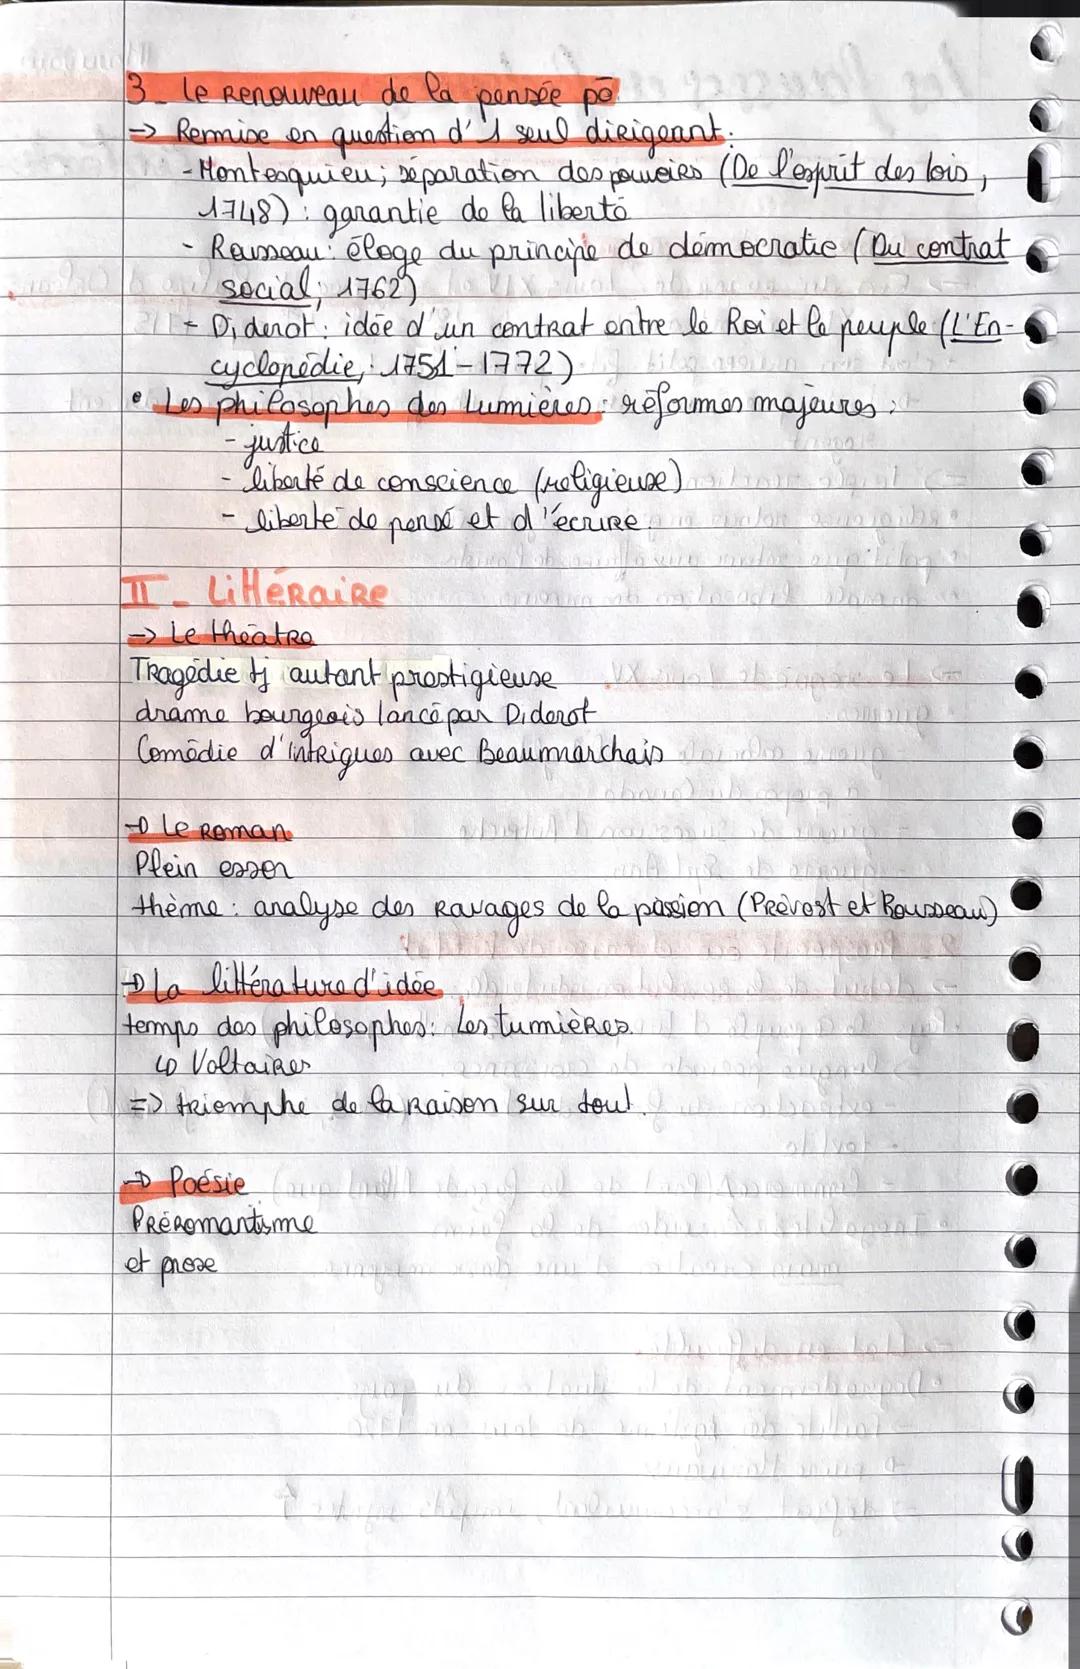 3_ Le Renouveau de la pensée pō
-> Remise en question d'1 seul dirigeant:
- Montesquieu; séparation des pouvoirs (De l'esprit des lois,
1748) : garantie de la liberté
- Rousseau : éloge du principe de démocratie (Du contrat
social, 1762)
- Diderot : idée d'un contrat entre le Roi et le peuple (L'En-
cyclopédie, 1751-1772)
• Les philosophes des Lumières : réformes majeures :
- justice
- liberté de conscience (religieuse)
- liberté de pensé et d'écrire.
II _ Littéraire
-> Le théâtre
Tragédie tj autant prestigieuse
drame bourgeois lancé par Diderot
Comédie d'intrigues avec Beaumarchais
-> Le Roman
Plein essor
thème : analyse des Ravages de la passion (Prévost et Rousseau)
-> La littérature d'idée
temps des philosophes : Les Lumières
↳ Voltaires
=> triomphe de la Raison sur tout.
-> Poésie
Préromantisme
et prose